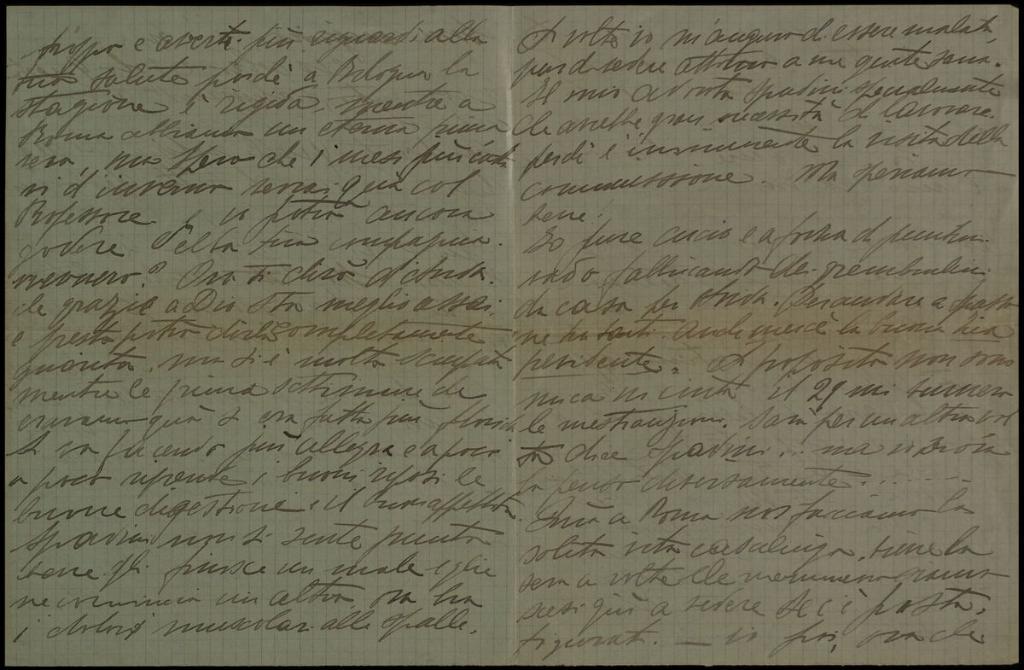 troppo e averti più riguardi alla
tua salute perchè a Bologna la
stagione è rigida, mentre a
Roma abbiamo un eterna prima
vera, ma spero che i mesi più
d'inverno verrai qua col
Professore, e io potrò ancora
godere della tua compagnia.
nevvero? Ora ti dirò di
che grazie a Dio sta meglio assai,
e presto potrò dirla completamente
guarita, ma si è molto sciupata
mentre le prime settimane che
eravamo quà si era fatta più florida
Si va facendo più allegra e a poco
a poco riprende i buoni riposi le
buone digestioni e il buon appetito
Spadini non si sente punto
bene gli finisce un male e gli
ne comincia un altro, ora ha
i dolori muscolari alle spalle.
A volte io mi auguro d'essere malata,
pur di vedere attorno a me gente sana.
Il mio adorato Spadini specialmente
che avrebbe gran necessità di lavorare
perchè è imminente la visita della
commissione. Ma speriamo
bene.
Io pure cucio e a forza di
vado fabbricando dei grembiulini
da casa per
ne ho fatti anche mercè la buona
A proposito non sono
mica incinta il 29 mi
le mestruazioni. Sarà per un altra vol
ta dice Spadini... ma io
la penso diversamente......
Quà a Roma noi facciamo la
solita vita casalinga,
sera a volte che nemmeno
così giù a vedere se c'è posta,
figurati. — io poi, ora che